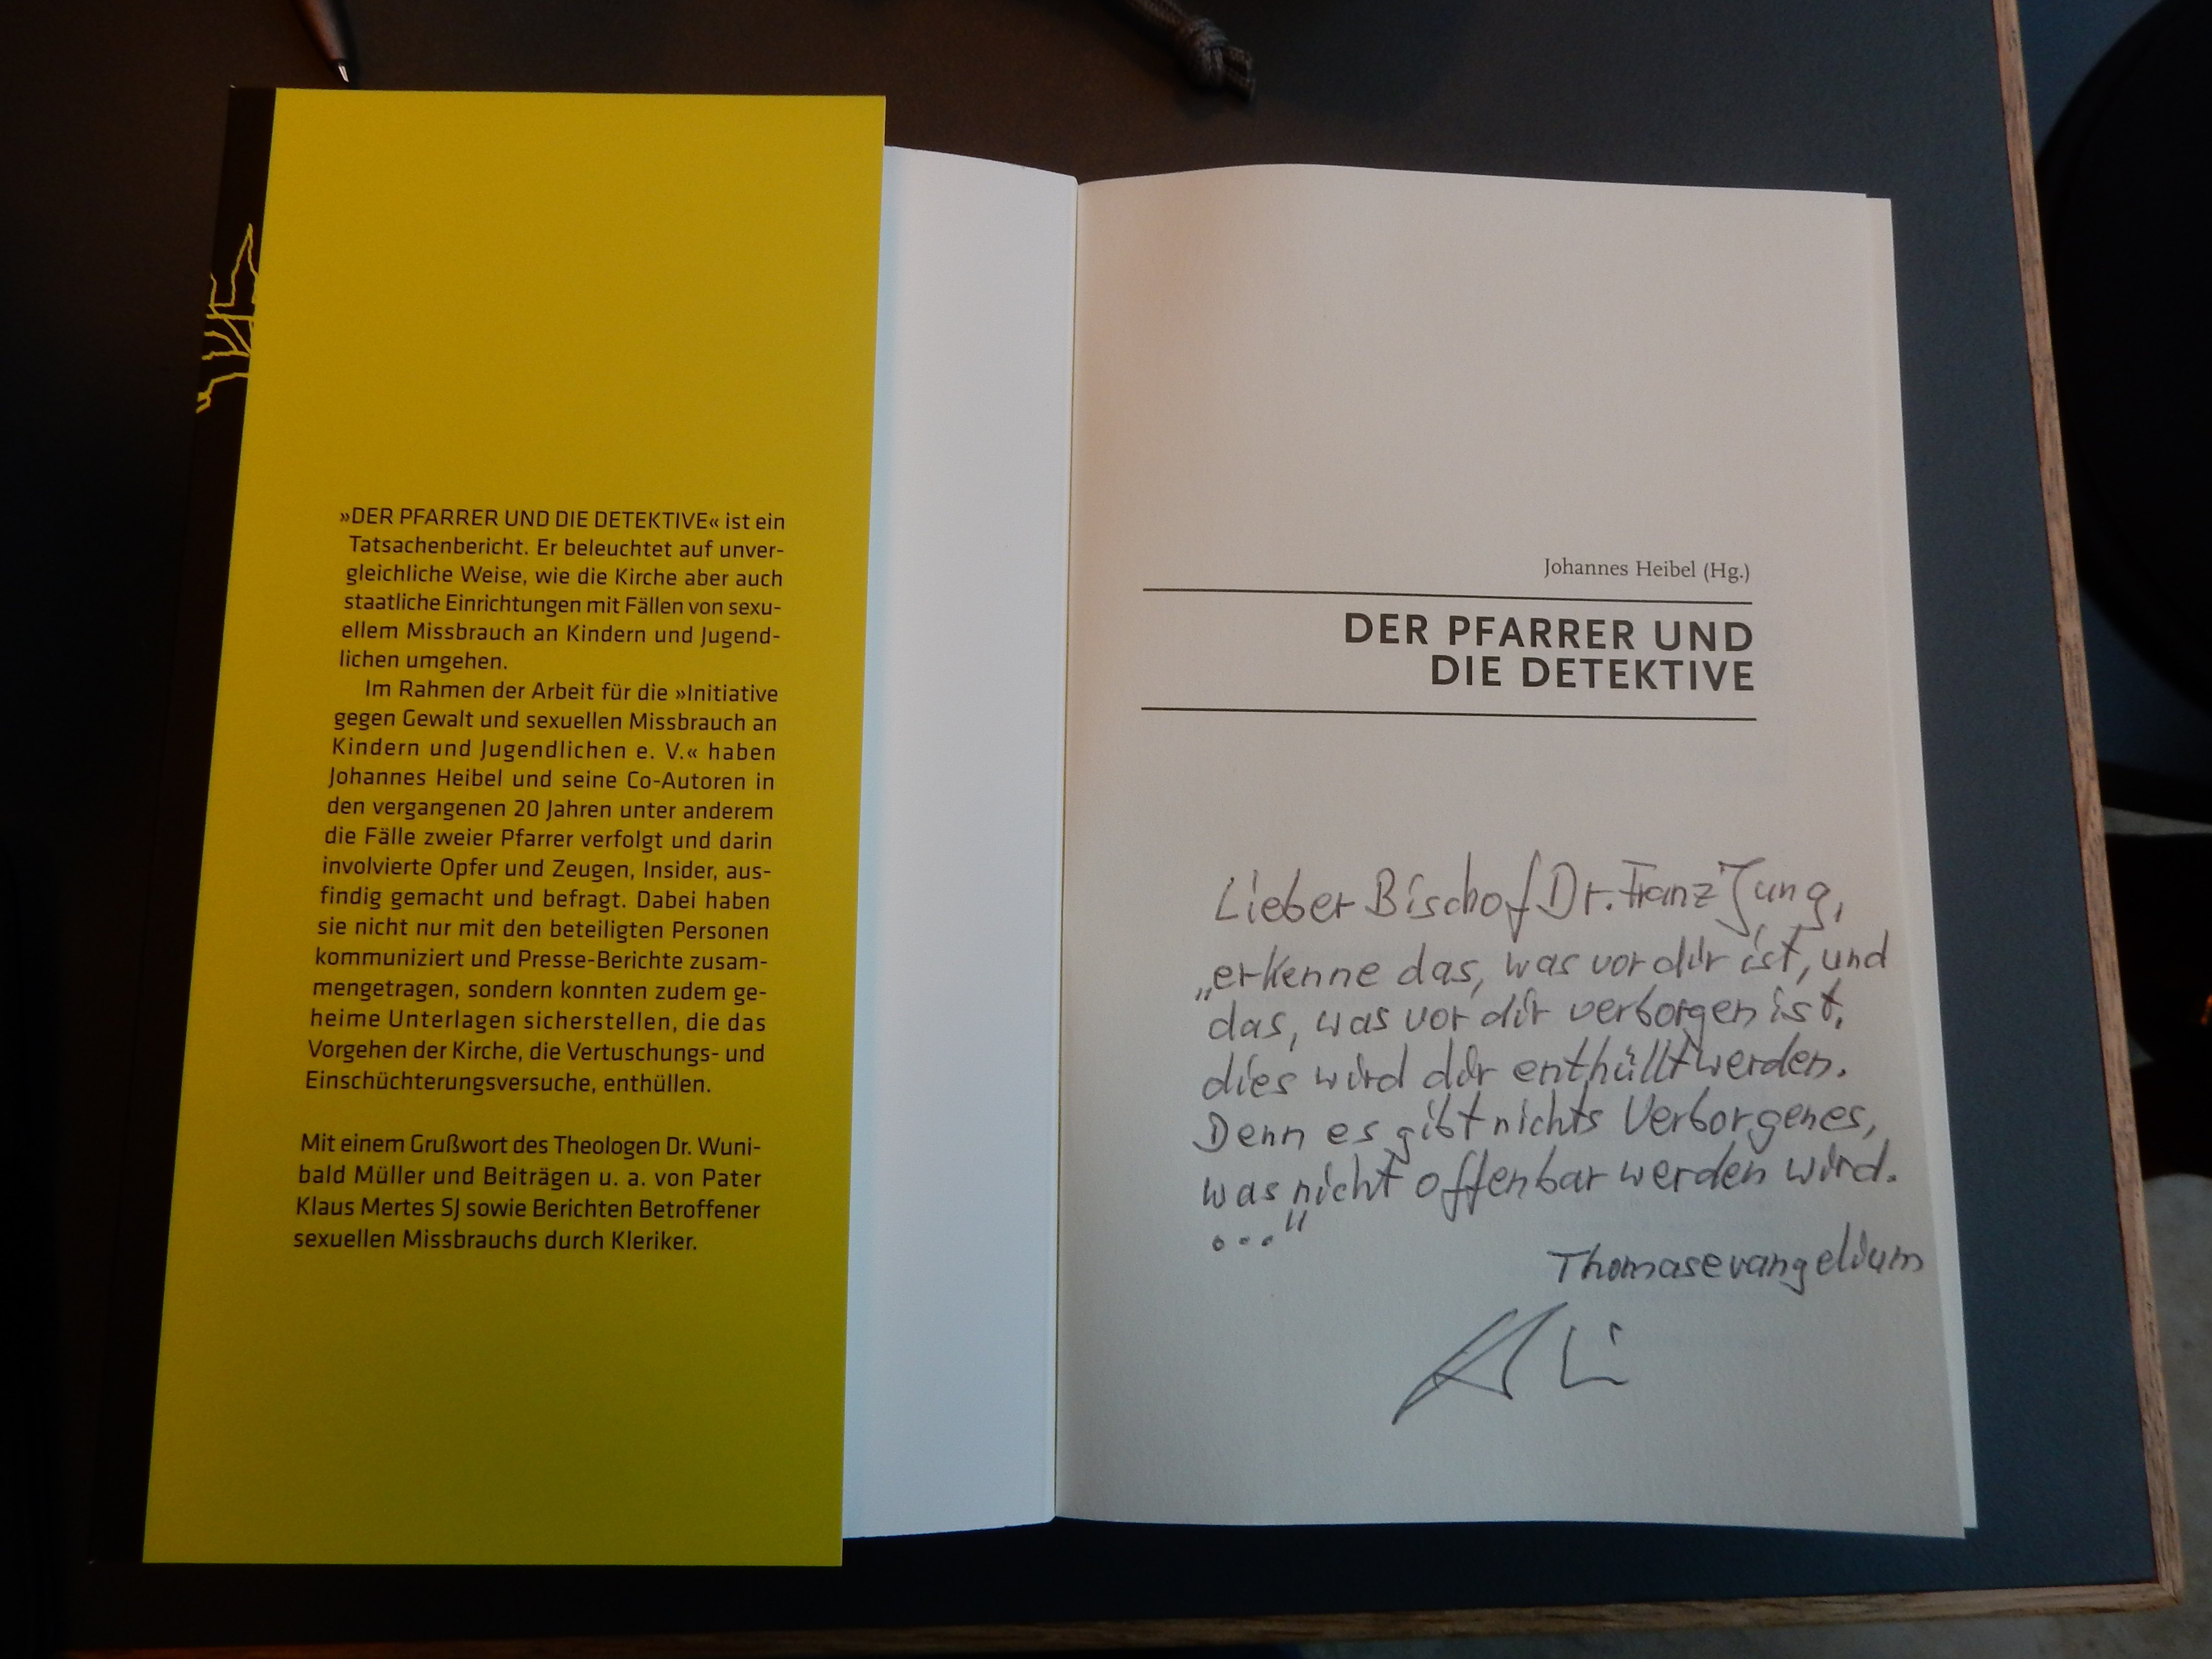 »DER PFARRER UND DIE DETEKTIVE« ist ein
Tatsachenbericht. Er beleuchtet auf unver-
gleichliche Weise, wie die Kirche aber auch
staatliche Einrichtungen mit Fällen von sexu-
ellem Missbrauch an Kindern und Jugend-
lichen umgehen.
Im Rahmen der Arbeit für die »Initiative
gegen Gewalt und sexuellen Missbrauch an
Kindern und Jugendlichen e. V.« haben
Johannes Heibel und seine Co-Autoren in
den vergangenen 20 Jahren unter anderem
die Fälle zweier Pfarrer verfolgt und darin
involvierte Opfer und Zeugen, Insider, aus-
findig gemacht und befragt. Dabei haben
sie nicht nur mit den beteiligten Personen
kommuniziert und Presse-Berichte zusam-
mengetragen, sondern konnten zudem ge-
heime Unterlagen sicherstellen, die das
Vorgehen der Kirche, die Vertuschungs- und
Einschüchterungsversuche, enthüllen.
Mit einem Grußwort des Theologen Dr. Wuni-
bald Müller und Beiträgen u. a. von Pater
Klaus Mertes SJ sowie Berichten Betroffener
sexuellen Missbrauchs durch Kleriker.
Johannes Heibel (Hg.)
DER PFARRER UND
DIE DETEKTIVE
Lieber Bischof Dr. Franz Jung,
„erkenne das, was vor dir ist, und
das, was vor dir verborgen ist,
dies wird dir enthüllt werden.
Denn es gibt nichts Verborgenes,
was nicht offenbar werden wird.
..."
Thomasevangelium